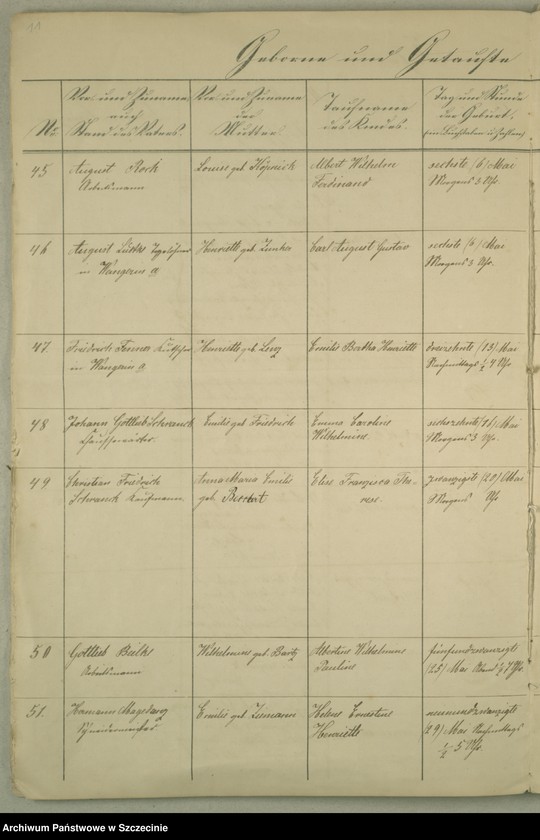 11
Geborne und Getaufte
No
Vor- und Zuname
auch
Stand des Vaters
Vor- und Zuname
der
Mutter
Taufname
des Kindes
Tag und Stunde
der Geburt,
45
August Rock
Arbeitsmann
Louise geb.
Albert Wilhelm
Ferdinand
sechste (6) Mai
Morgens 3 Uhr
46
August Tagelöhner
in Wangerin a
Henriette geb.
Carl August Gustav
sechste (6) Mai
Morgens 3 Uhr.
47.
Friedrich
in Wangerin a.
Henriette geb.
Emilie Bertha Henriette
dreizehnte (13) Mai
Nachmittags ½ 4 Uhr
48
Johann Gottlieb Schwanck
Emilie geb. Friedrich
Emma Caroline
Wilhelmine.
sechszehnte (16) Mai
Morgens 3 Uhr.
49
Christian Friedrich
Schwanck Kaufmann
Anna Maria Emilie
geb.
Elise Franzisca The-
rese.
zwanzigste (20) Mai
Morgens Uhr
50
Gottlieb
Arbeitsmann
Wilhelmine geb.
Albertine Wilhelmine
Pauline
fünfundzwanzigste
(25) Mai Abend ½ 7 Uhr.
51.
Hermann
Schneidermeister
Emilie geb. Ziemann
Helene Ernestine
Henriette
neunundzwanzigste
(29) Mai Nachmittags
½ 5 Uhr.
Archiwum Państwowe w Szczecinie